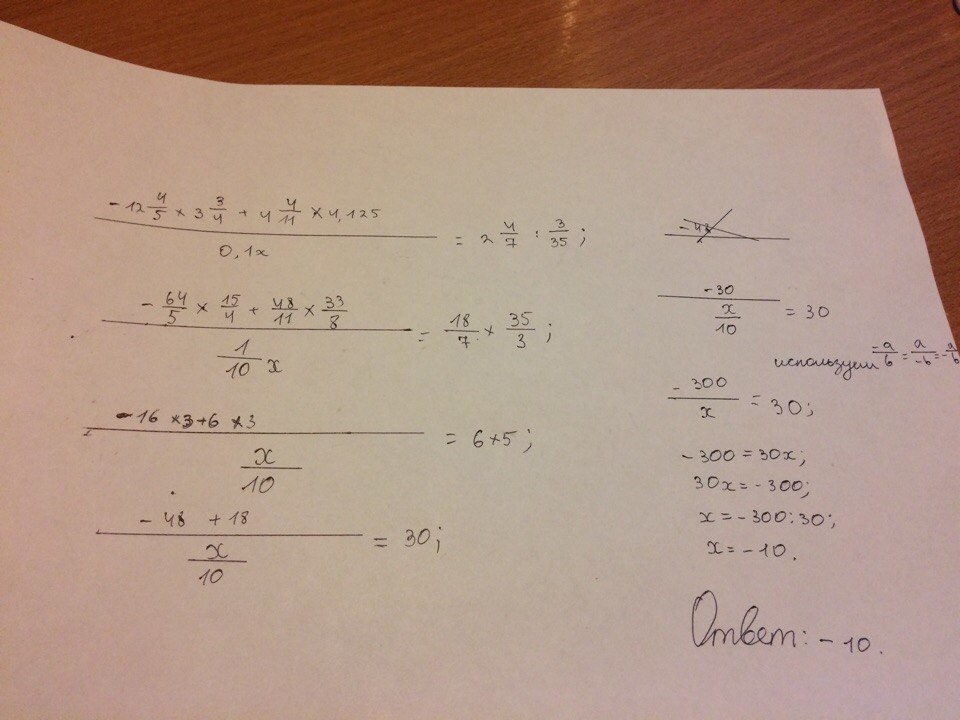 -12 4/5 × 3 3/4 + 4 4/11 × 4,125
0,1x
= 2 4/7 : 3/35 ;
- 64/5 × 15/4 + 48/11 × 33/8
1/10 x
= 18/7 × 35/3 ;
-16 × 3 + 6 × 3
x/10
= 6 × 5 ;
- 48 + 18
x/10
= 30 ;
-30
x/10
= 30
используем -a/b = a/-b = -a/b
- 300
x
= 30 ;
- 300 = 30x ;
30x = - 300 ;
x = - 300 : 30 ;
x = - 10 .
Ответ: - 10 .